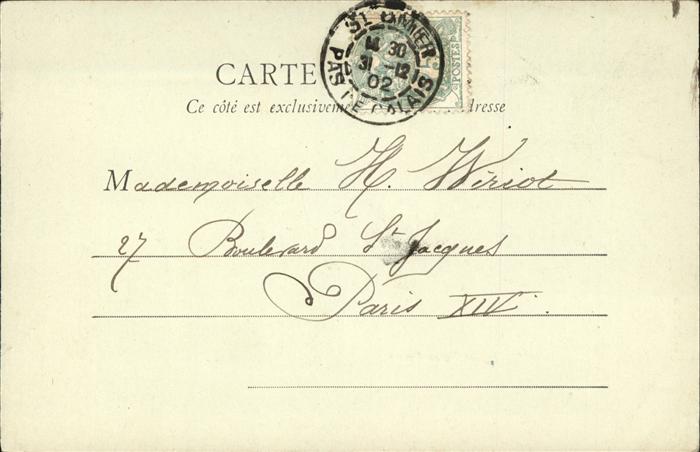 ST OMER
M 30
31 -12
02
PAS DE CALAIS
POSTES
CARTE
Ce côté est exclusivement dresse
Mademoiselle H. Wiriot
27 Boulevard St Jacques
Paris XIV